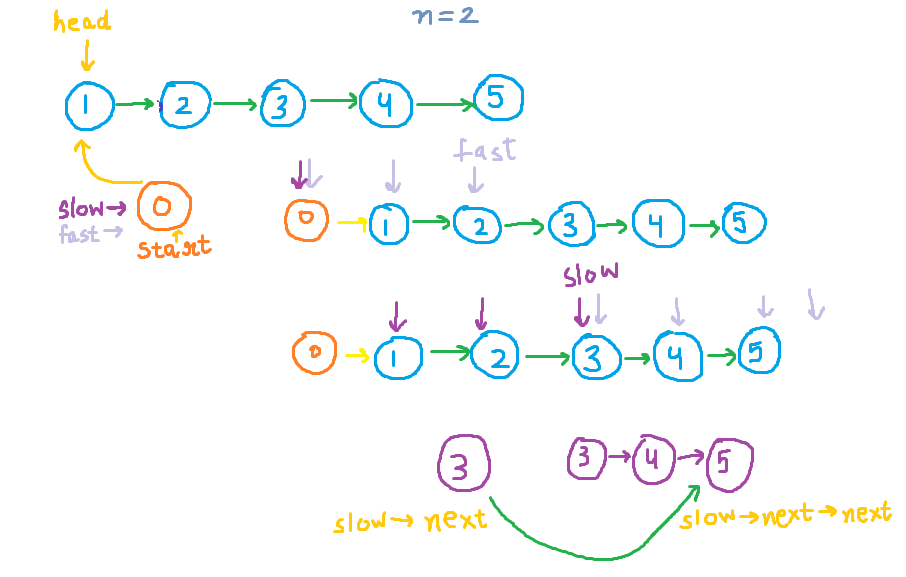 head
n=2
1 → 2 → 3 → 4 → 5
fast
slow→ 0
fast →
start
0 → 1 → 2 → 3 → 4 → 5
slow
0 → 1 → 2 → 3 → 4 → 5
3
3→4→5
slow→ next
slow→next→next